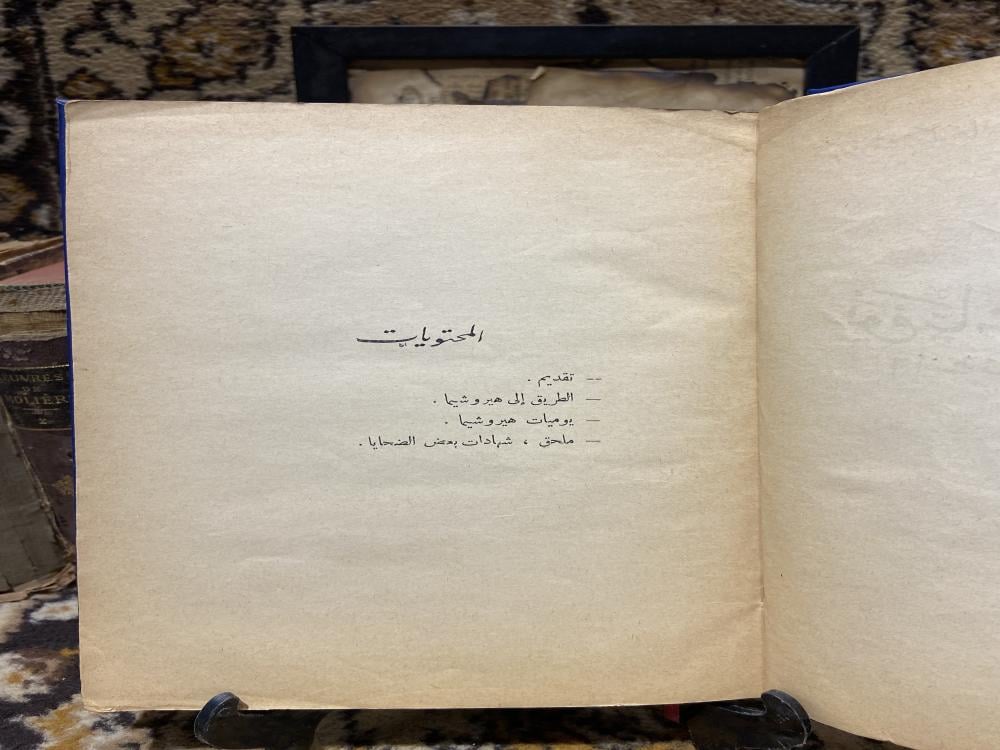 المحتويات
-- تقديم .
— الطريق إلى هيروشيما .
— يوميات هيروشيما .
— ملحق ، شهادات بعض الضحايا .
ŒUVRES
DE
MOLIÈR
2